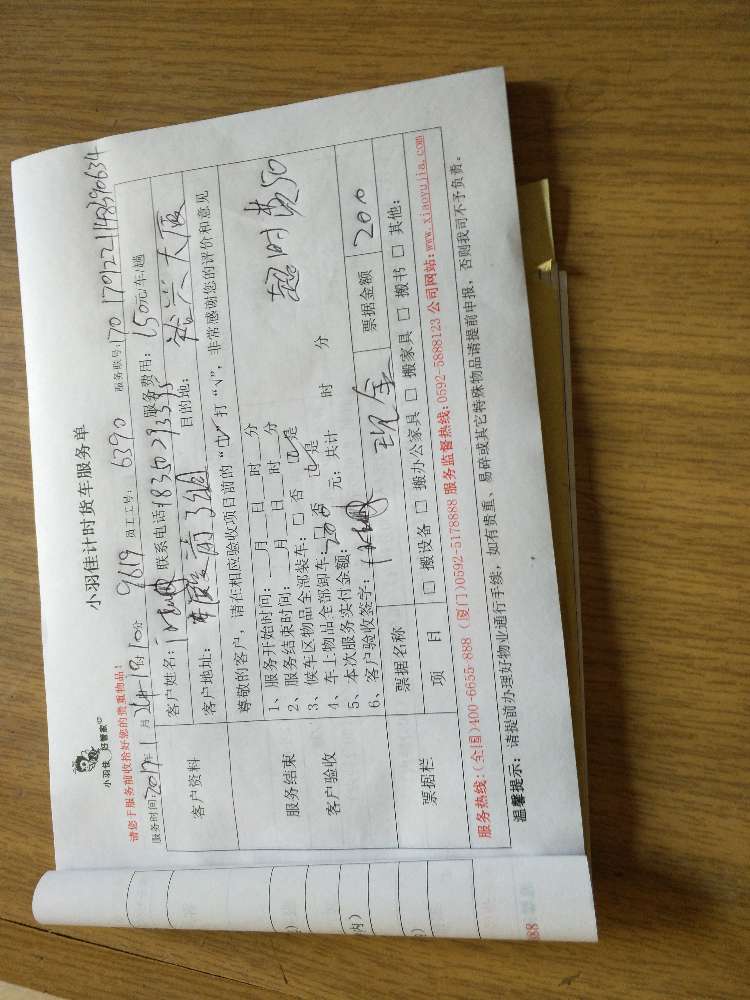 小羽佳 好管家
小羽佳计时货车服务单
请您于服务前收拾好您的贵重物品!
服务时间: 2017年1月 分 9619 员工工号: 6390 服务账号:
客户资料
客户姓名: 联系电话 服务费用: 150元/车/趟
客户地址: 目的地: 裕兴大厦
尊敬的客户,请在相应验收项目前的“□”打“√”,非常感谢您的评价和意见
服务结束
客户验收
1、服务开始时间: 月 日 时 分
2、服务结束时间: 月 日 时 分
3、候车区物品全部装车: □ 否 □ 是
4、车上物品全部卸车: □ 否 □ 是
5、本次服务实付金额: 200 元; 共计 时 分
6、客户验收签字:
超时费50
票据栏
票据名称 现金 票据金额 200
项 目 □ 搬设备 □ 搬办公家具 □ 搬家具 □ 搬书 □ 其他:
服务热线:(全国)400-6655-888 (厦门)0592-5178888 服务监督热线:0592-5888123 公司网站:www.xiaoyujia.com
温馨提示: 请提前办理好物业通行手续, 如有贵重、易碎或其它特殊物品请提前申报, 否则我司不予负责。